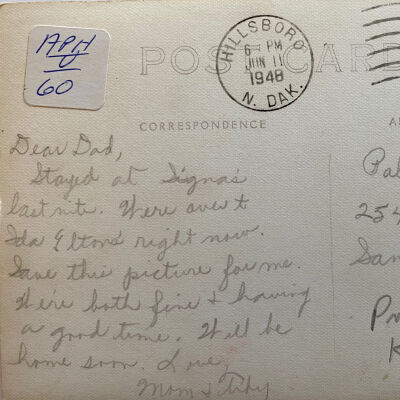 APH
60
POST CARD
HILLSBORO
6 PM
JUN 11
1948
N. DAK.
CORRESPONDENCE
Dear Dad,
Stayed at Signa's
last nite. We're over t
Ida Elton's right now.
Save this picture for me.
We're both fine & having
a good time. Will be
home soon. Love,
Mom &
Pal
254
San